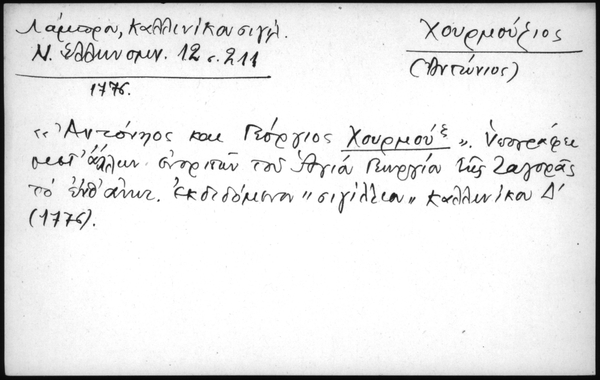 Λάμπρου, Καλλινίκου σιγίλ.
Ν. Ἑλληνομν. 12 σ. 211
1776.
Χουρμούζιος
(Ἀντώνιος)
"Ἀντώνιος καὶ Γεόργιος Χουρμούξ". Ὑπογράφει
μετ' ἄλλων ἐνοριτῶν τοῦ Ἁγίου Γεωργίου τῆς Ζαγορᾶς
τὸ ἐκδιδόμενον "σιγίλλιον" Καλλινίκου Δ'
(1776).